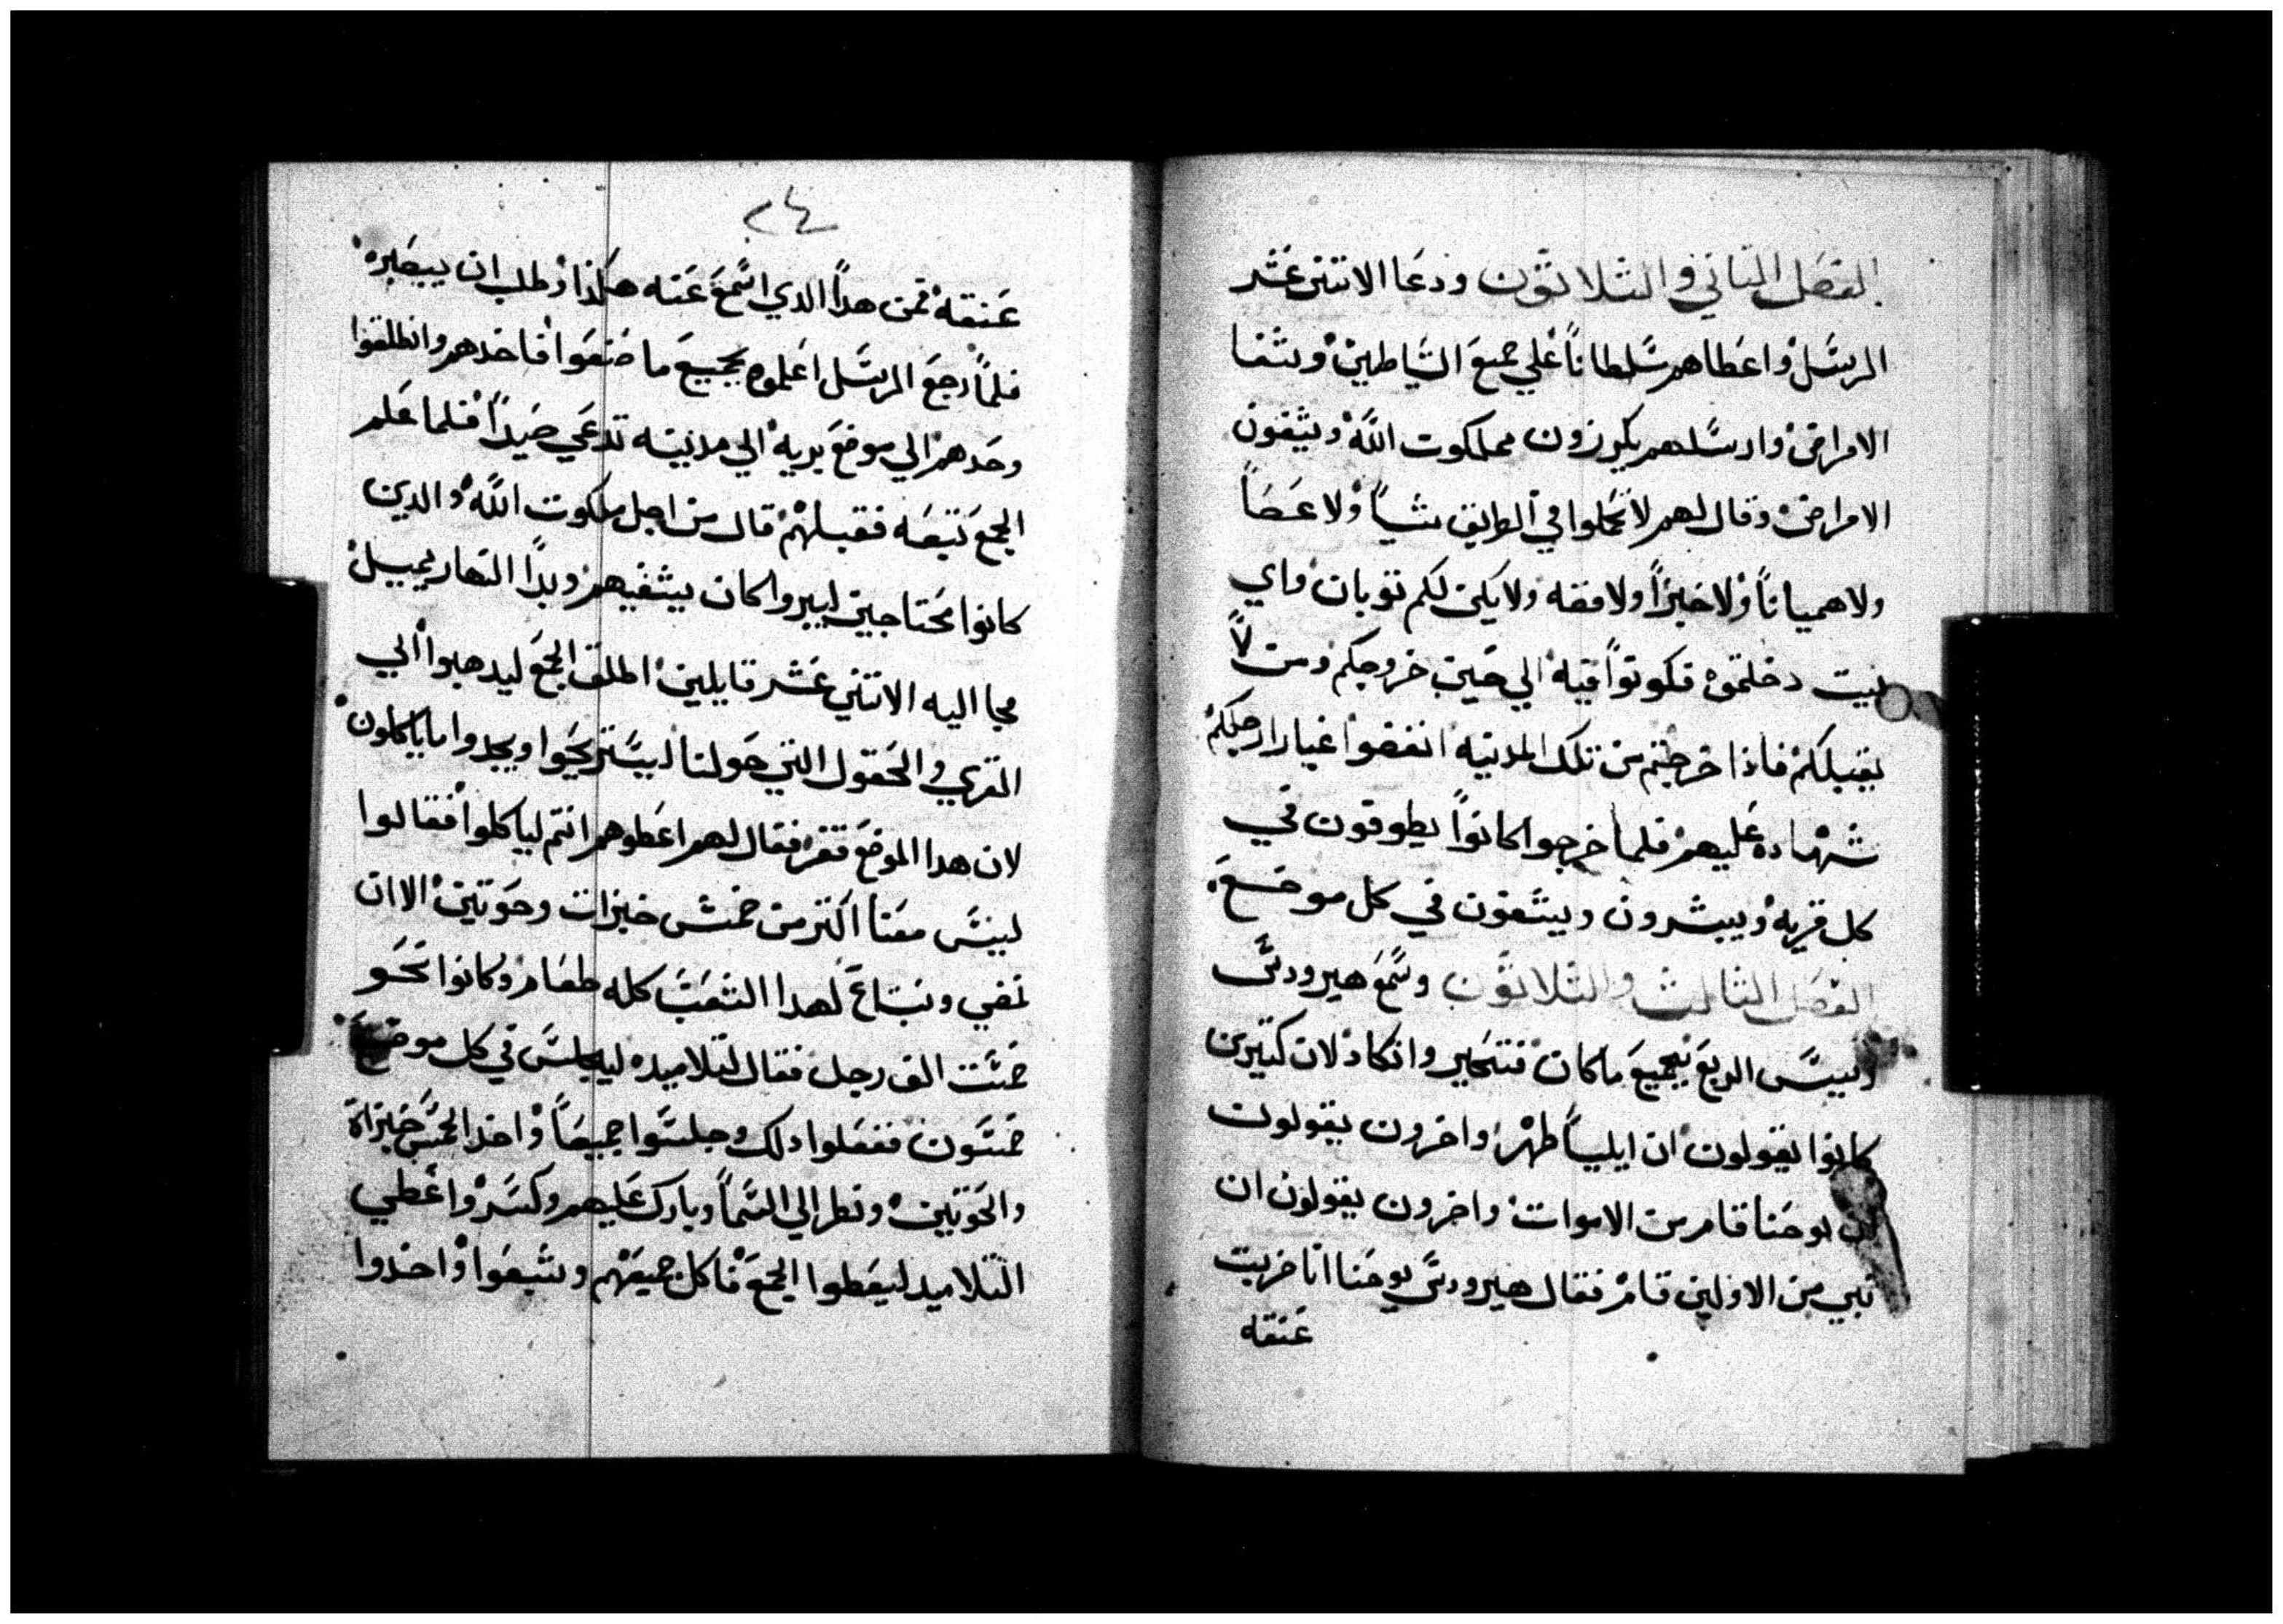 الفصل التاني والتلاتون ودعا الاتني عشر
الرسل واعطاهم سلطانا علي جميع الشياطين وشفا
الامراض وارسلهم يكرزون بملكوت الله ويشفون
الامراض وقال لهم لا تحملوا في الطريق شيا ولا عصا
ولا هميانا ولا خبزا ولا فضه ولا يكن لكم توبان واي
بيت دخلتموه فكونوا فيه الي حين خروجكم ومن لا
يقبلكم فاذا خرجتم من تلك المدينه انفضوا غبار ارجلكم
شهاده عليهم فلما خرجوا كانوا يطوفون في
كل قريه ويبشرون ويشفون في كل موضع
الفصل الثالث والتلاتون وسمع هيرودس
رييس الربع بجميع ما كان فتحير وانكاد لان كتيرين
كانوا يقولون ان ايليا ظهر واخرون يقولون
ان يوحنا قام من الاموات واخرون يقولون ان
نبي من الاولين قام فقال هيرودس يوحنا انا ضربت
عنقه
٢٤
عنقه فمن هدا الدي اسمع عنه هكذا وطلب ان يبصره
فلما رجع الرسل اعلموه بجميع ما صنعوا فاخدهم وانطلقوا
وحدهم الي موضع بريه الي مدينه تدعي صيدا فلما علم
الجمع تتبعه فقبلهم قال من اجل ملكوت الله والدين
كانوا محتاجين ليبروا كان يشفيهم وبدا النهار يميل
فجا اليه الاتني عشر قايلين اطلق الجمع ليدهبوا الي
القري والحقول التي حولنا ليستريحوا ويجدوا ما ياكلون
لان هدا الموضع قفر فقال لهم اعطوهم انتم لياكلوا فقالوا
ليس معنا اكتر من خمس خبزات وحوتين الا ان
نمضي ونبتاع لهدا الشعب كله طعام وكانوا نحو
خمست الف رجل فقال لتلاميده ليجلس في كل موضع
خمسون ففعلوا دلك وجلسوا جميعا واخد الخمس خبزاة
والحوتين ونظر الي السما وبارك عليهم وكسر واعطي
التلاميد ليعطوا الجمع فاكل جميعهم وشبعوا واخدوا